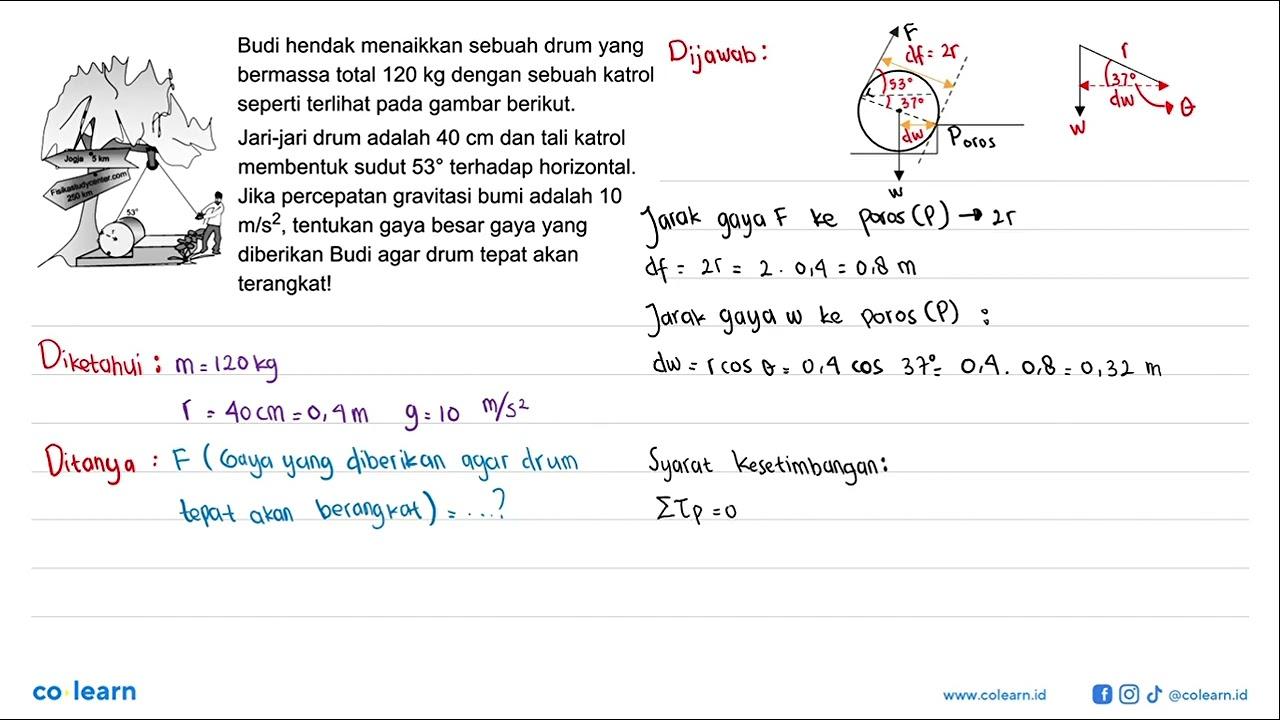 Budi hendak menaikkan sebuah drum yang
bermassa total 120 kg dengan sebuah katrol
seperti terlihat pada gambar berikut.
Jari-jari drum adalah 40 cm dan tali katrol
membentuk sudut 53° terhadap horizontal.
Jika percepatan gravitasi bumi adalah 10
m/s², tentukan gaya besar gaya yang
diberikan Budi agar drum tepat akan
terangkat!
Jogja 5 km
Fisikastudycenter.com
250 km
53°
Diketahui : m = 120 kg
r = 40 cm = 0,4 m g = 10 m/s²
Ditanya : F (Gaya yang diberikan agar drum
tepat akan berangkat) = ...?
Dijawab :
F
df = 2r
53°
37°
dw
Poros
w
r
37°
dw
θ
w
Jarak gaya F ke poros (P) → 2r
df = 2r = 2 . 0,4 = 0,8 m
Jarak gaya w ke poros (P) :
dw = r cos θ = 0,4 cos 37° = 0,4 . 0,8 = 0,32 m
Syarat Kesetimbangan :
Στp = 0
co learn
www.colearn.id
@colearn.id